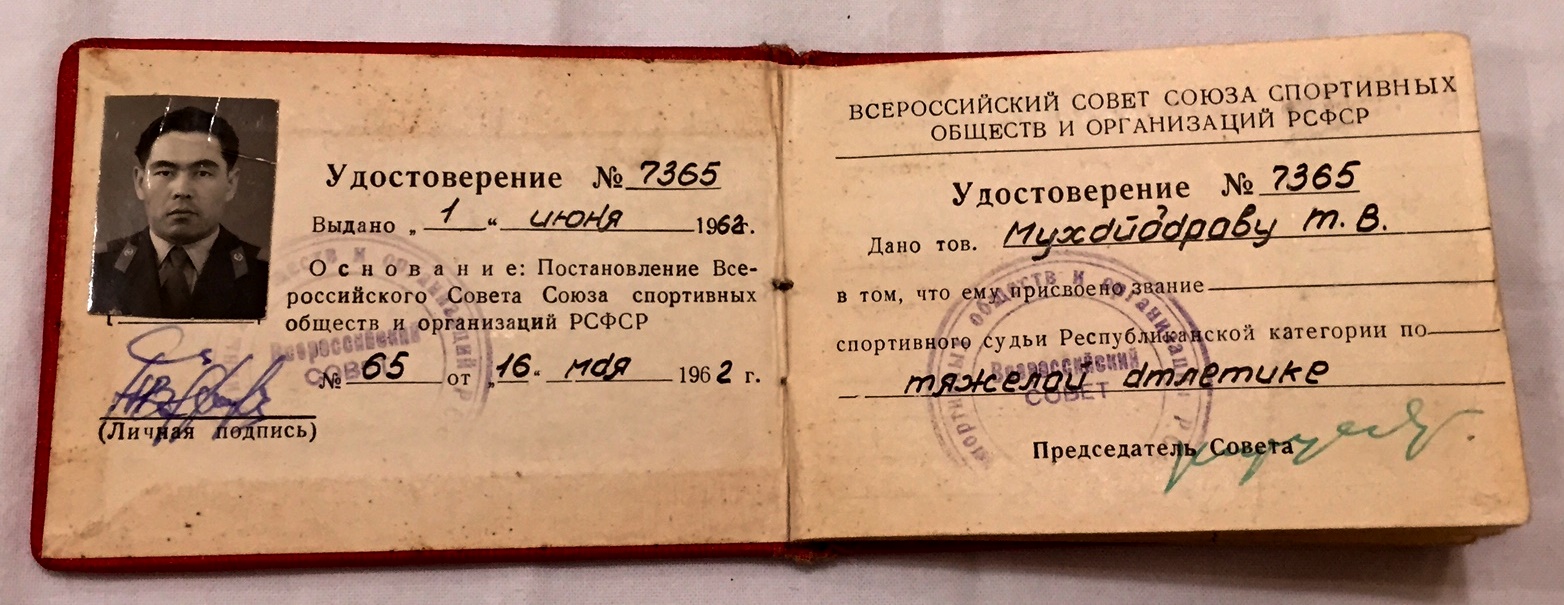 Удостоверение № 7365
Выдано „ 1 “ июня 1962г.
Основание: Постановление Все-
российского Совета Союза спортивных
обществ и организаций РСФСР
№ 65 от „16“ мая 1962 г.
(Личная подпись)
Всероссийский
СОВЕТ
ВСЕРОССИЙСКИЙ СОВЕТ СОЮЗА СПОРТИВНЫХ
ОБЩЕСТВ И ОРГАНИЗАЦИЙ РСФСР
Удостоверение № 7365
Дано тов. Т. В.
в том, что ему присвоено звание
спортивного судьи Республиканской категории по
тяжелай атлетике
обществ и организаций
Всероссийский
СОВЕТ
Председатель Совета